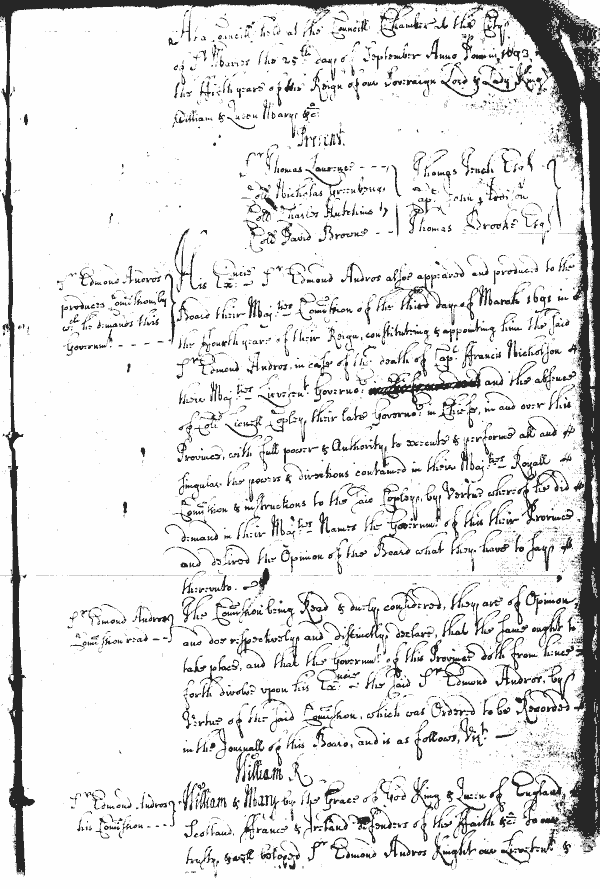 At a Councill held at the Councill Chamber at the City
of St Maries the 25th day of September Anno Domini 1693
the fifth yeare of the Reign of our Sovereign Lord & Lady King
William & Queen Mary &ca
Present
Sr Thomas Laurence - - -
Coll Nicholas Greenberry
Coll Charles Hutchins
Coll David Browne - -
Thomas Tench Esqr
Capt John
Thomas Brooke Esqr
Sr Edmond Andros
produces Comission by
wch he demands this
Governmt - - - -
His Excncie Sr Edmond Andros alsoe appeared and produced to the
Board their Majtes Comission of the third day of March 1691 in
the fourth yeare of their Reign, constituting & appointing him the said
Sr Edmond Andros, in case of the death of Capt Francis Nicholson
their Majtes Lieutent Governor and the absence
of Coll Lionell Copley, their late Governor in Cheife, in and over this
Province, with full power & Authority, to execute & performe all and
singular the powers & directions contained in their Majtes Royall
Comission & instructions to the said Copley, by Vertue whereof he did
demand in their Majtes Names the Governmt of this their Province
and desired the Opinion of the Board what they have to say
thereunto.
Sr Edmond Andros
Comission read - -
The Comission being Read & duely considered, they are of Opinion,
and doe respectively and distinctly declare, that the same ought to
take place, and that the Governmt of this Province doth from hence
forth devolve upon his Excncie the said Sr Edmond Andros, by
Vertue of the said Comission, which was Ordered to be Recorded
in the Journall of this Board, and is as follows, Vizt
William R
Sr Edmond Andros
his Comission - - -
William & Mary by the Grace of God King & Queen of England,
Scotland, France & Ireland defenders of the Faith &c To our
trusty & well beloved Sr Edmond Andros Knight our Lieutent &